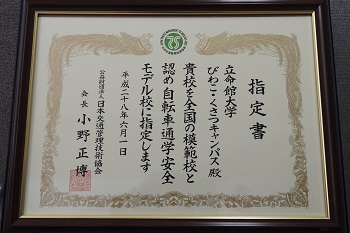 指定書
立命館大学
びわこ・くさつキャンパス 殿
貴校を全国の模範校と
認め自転車通学安全
モデル校に指定します
平成二十八年六月一日
公益財団法人 日本交通管理技術協会
会長 小野正博